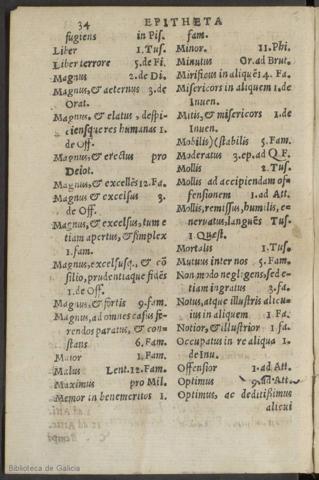 34 EPITHETA
fugiens in Pis.
Liber 1. Tus.
Liber terrore 5. de Fi.
Magnus 2. de Di.
Magnus, & aeternus 3. de
Orat.
Magnus, & elatus, despi-
ciensque res humanas 1.
de Off.
Magnus, & erectus pro
Deiot.
Magnus, & excellēs 12. Fa.
Magnus, & excelsus 3.
de Off.
Magnus, & excelsus, tum e
tiam apertus, & simplex
1. fam.
Magnus, excelsusq., & cō
silio, prudentiaque fidēs
1. de Off.
Magnus, & fortis 9. fam.
Magnus, ad omnes casus fe-
rendos paratus, & con-
stans 6. Fam.
Maior 1. Fam.
Malus Lent. 12. Fam.
Maximus pro Mil.
Memor in benemeritos 1.
fam.
Minor. 11. Phi.
Minutus Or. ad Brut.
Mirificus in aliquē 14. Fa.
Misericors in aliquem 1. de
Inuen.
Mitis, & misericors 1. de
Inuen.
Mobilis) (stabilis 5. Fam.
Moderatus 3. ep. ad Q. F.
Mollis 2. Tus.
Mollis ad accipiendam of-
fensionem 1. ad Att.
Mollis, remissus, humilis, e-
neruatus, languēs Tus.
1 Quest.
Mortalis 1. Tus.
Mutuus inter nos 5. Fam.
Non modo negligens, sed e-
tiam ingratus 3. fa.
Notus, atque illustris alicu-
ius in aliquem 1 Fa.
Notior, & illustrior 1. fa.
Occupatus in re aliqua 1.
de Inu.
Offensior 1. ad Att.
Optimus 9. ad Att.
Optimus, ac deditissimus
alicui
Biblioteca de Galicia